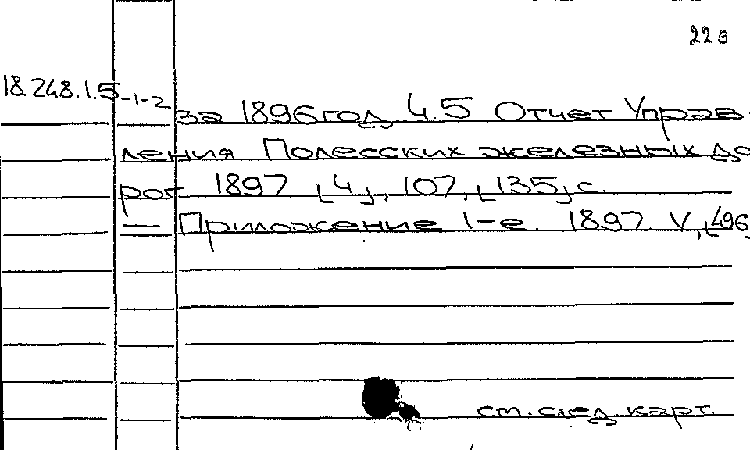 22в
18.248.1.5-1-2
за 1896 год. Ч.5 Отчет Управ-
ления Полесских железных до
рог 1897 [4], 107, [135] с.
— Приложение 1-е. 1897. V, [496
см. след. карт.